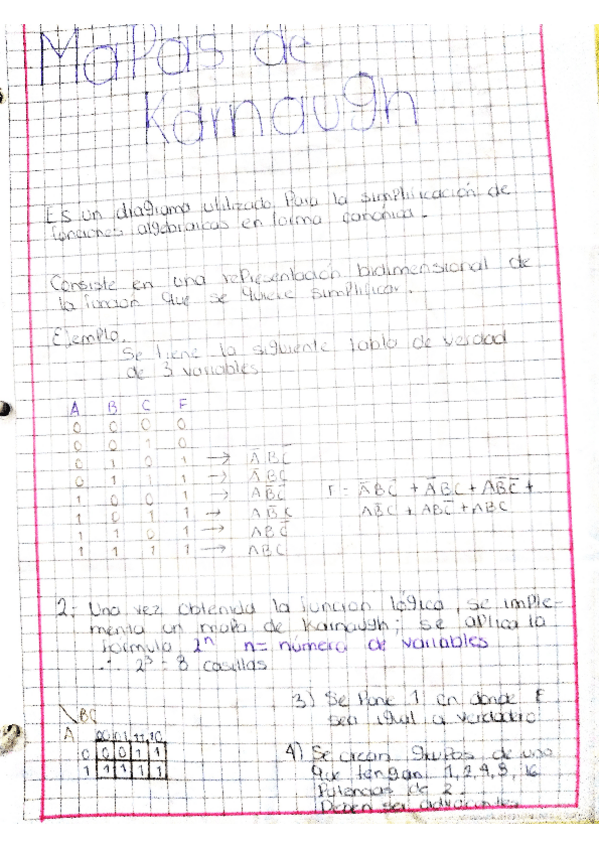 Mapas de
Karnaugh
Es un diagrama utilizado Para la simplificación de
funciones algebraicas en forma canonica.
Consiste en una representación bidimensional de
la función que se quiere simplificar.
Ejemplo.
Se tiene la siguiente tabla de verdad
de 3 variables
A B C F
0 0 0 0
0 0 1 0
0 1 0 1 → A̅BC̅
0 1 1 1 → A̅BC
1 0 0 1 → AB̅C̅
1 0 1 1 → AB̅C
1 1 0 1 → ABC̅
1 1 1 1 → ABC
F = A̅BC̅ + A̅BC + AB̅C̅ +
AB̅C + ABC̅ + ABC
2. Una vez obtenida la función lógica, se imple-
menta un mapa de Karnaugh; se aplica la
formula 2ⁿ n= número de variables
∴ 2³ = 8 casillas
3) Se Pone 1 en donde F
sea igual a verdadero
\BC
A 00 01 11 10
0 0 0 1 1
1 1 1 1 1
4) Se crean grupos de uno
que tengan 1, 2, 4, 8, 16
Potencias de 2.
Deben ser adyacentes